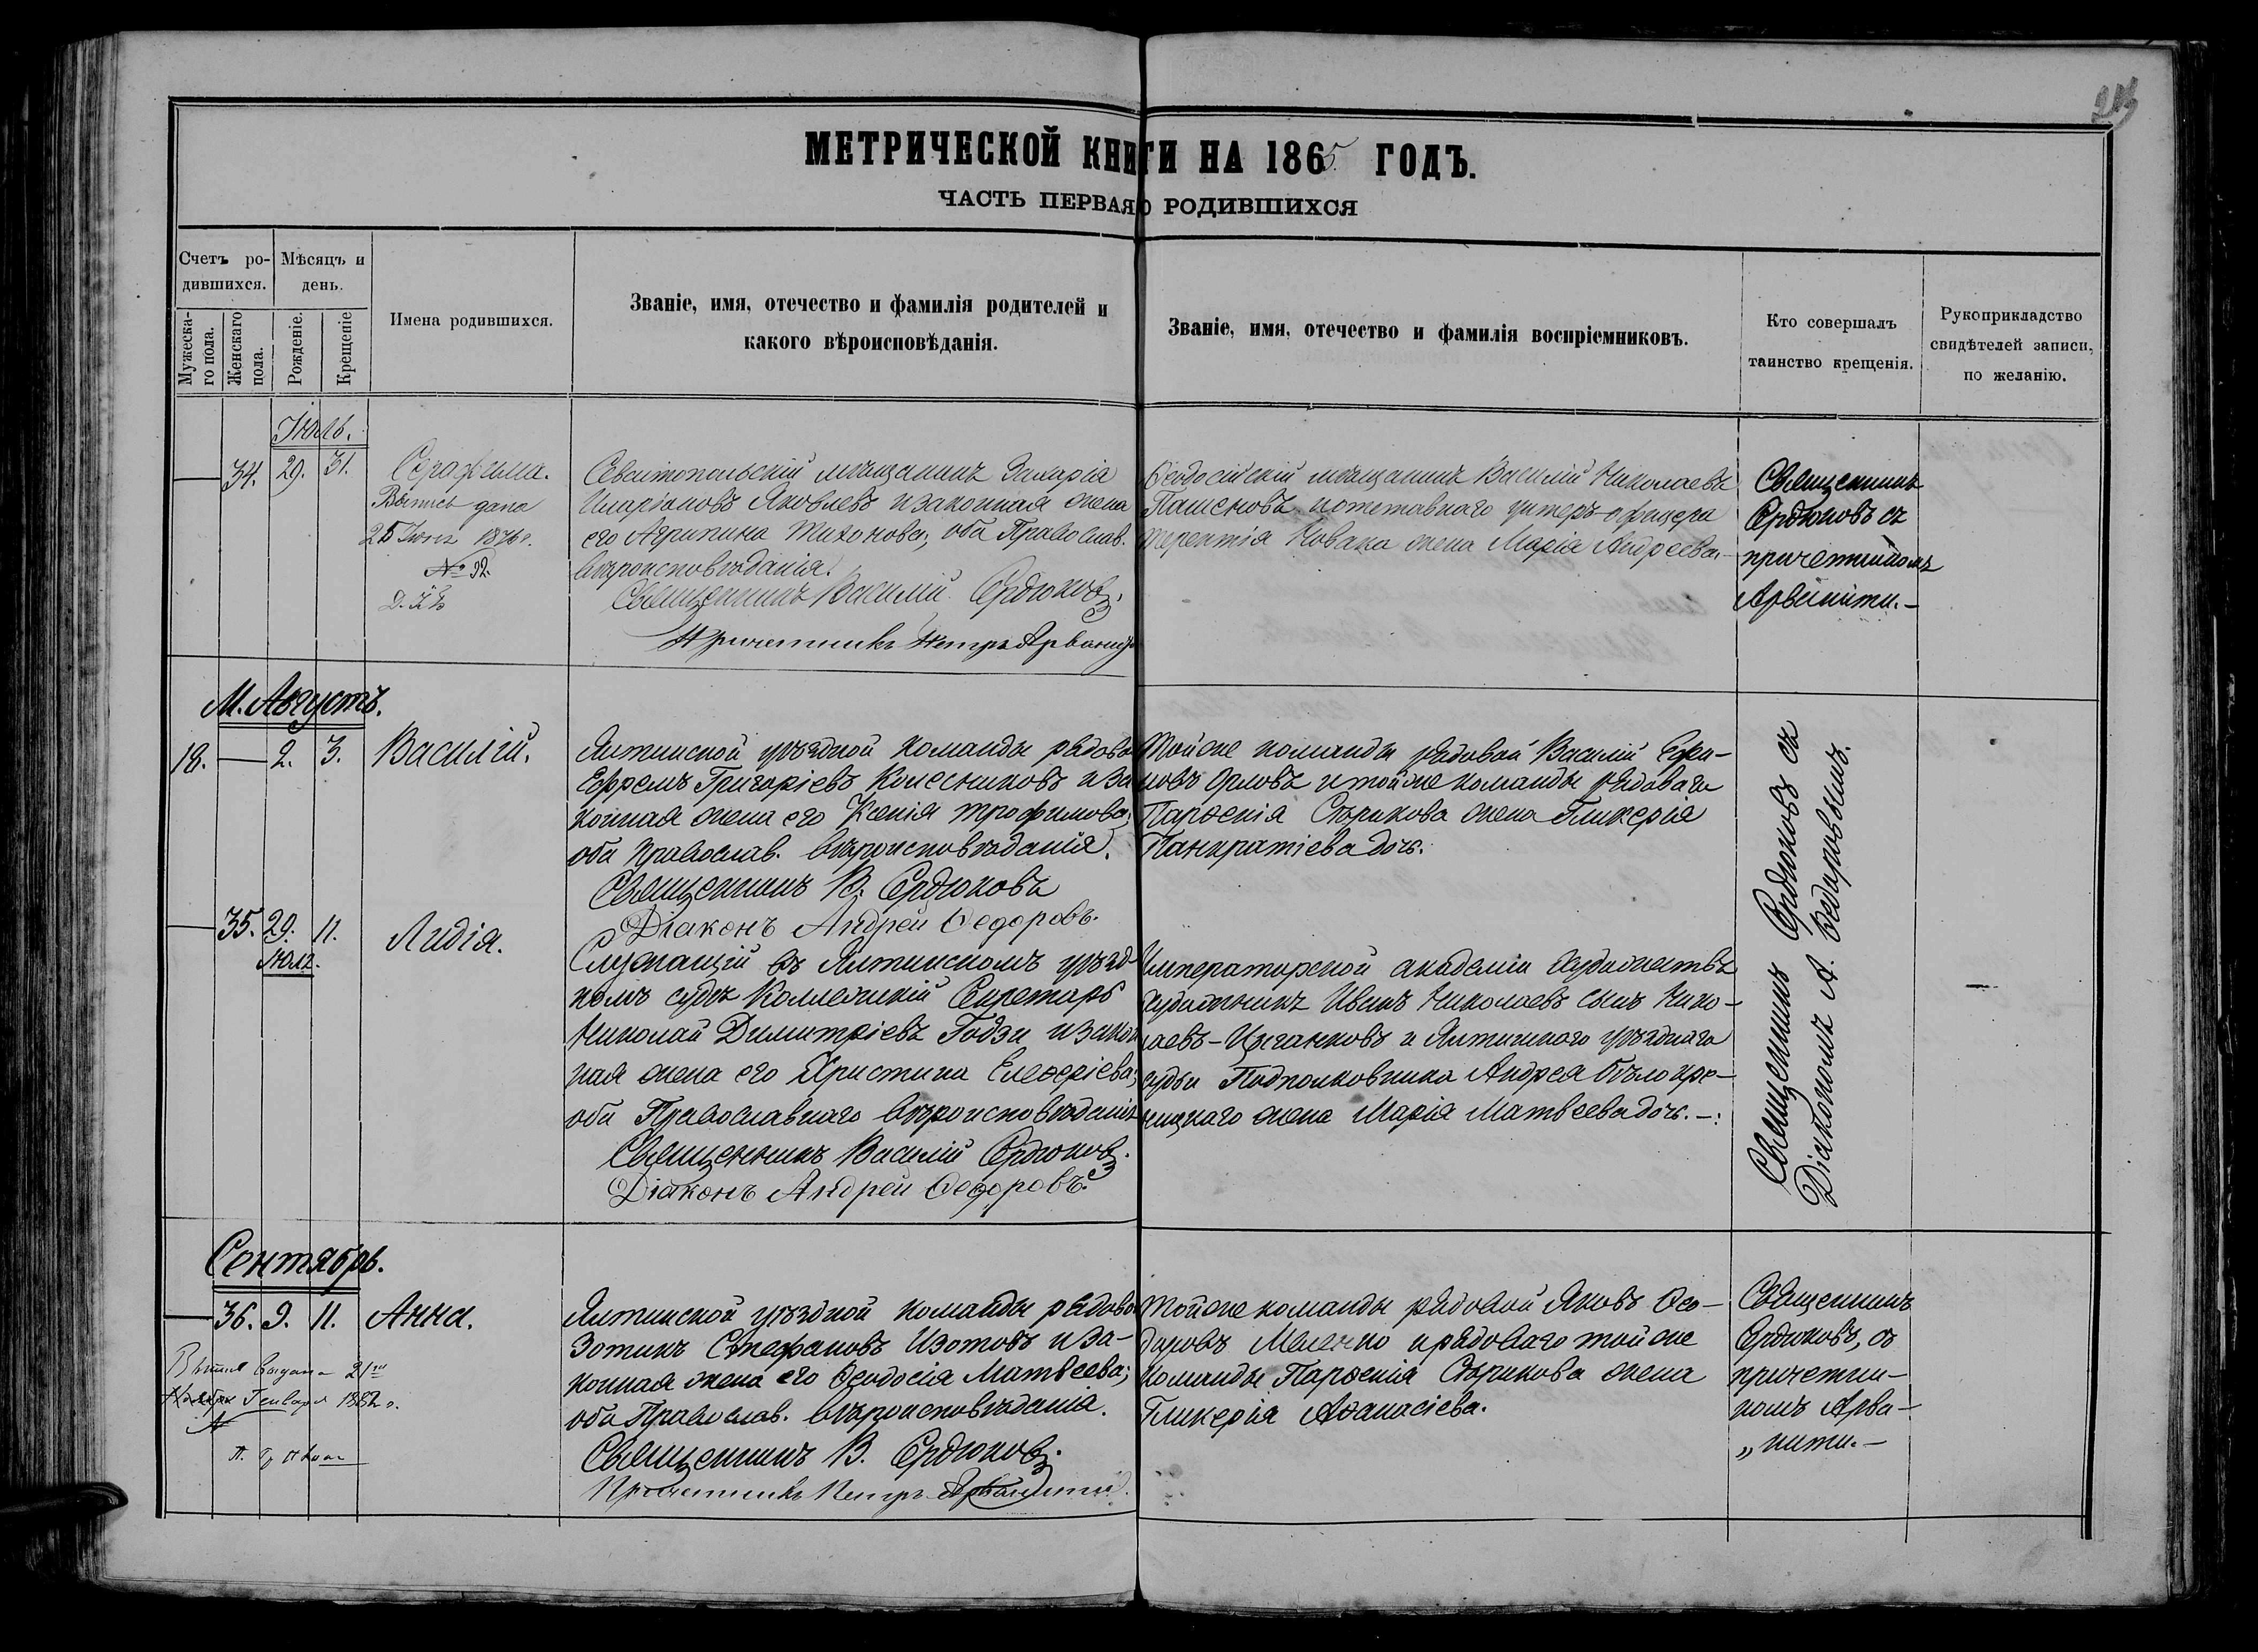 МЕТРИЧЕСКОЙ КНИГИ НА 1865 ГОДЪ.
ЧАСТЬ ПЕРВАЯ О РОДИВШИХСЯ
Счетъ ро-
дившихся.
Мужеска-
го пола.
Женскаго
пола.
Мѣсяцъ и
день.
Рожденіе.
Крещеніе
Имена родившихся.
Званіе, имя, отечество и фамилія родителей и
какого вѣроисповѣданія.
Званіе, имя, отечество и фамилія воспріемниковъ.
Кто совершалъ
таинство крещенія.
Рукоприкладство
свидѣтелей записи,
по желанію.
Іюль.
34. 29. 31.
Серафима.
Выпись дана
25 Іюня 1876 г.
№ 92.
Севастопольскій мѣщанинъ Захарія
Иларіоновъ Яковлевъ и законная жена
его Агрипина Тихонова, оба Православ.
вѣроисповѣданія.
Священникъ Василій Сердюковъ.
Причетникъ Петръ Арванити
Ѳеодосійскій мѣщанинъ Василій Николаевъ
Пашковъ и отставнаго унтеръ-офицера
Терентія Новака жена Марія Андреева.-
Священникъ
Сердюковъ съ
причетникомъ
Арванити.-
М. Августъ.
18. — 2. 3.
Василій.
Ялтинской уѣздной команды рядово
Ефремъ Григоріевъ Колесниковъ и за
конная жена его Ксенія Трофимова;
оба православ. вѣроисповѣданія.
Священникъ В. Сердюковъ
Діаконъ Андрей Ѳедоровъ.
Тойже команды рядовой Василій Ефи-
мовъ Орловъ и тойже команды рядоваго
Парѳенія Старикова жена Гликерія
Панкратіева дочь.
35. 29. 11.
Іюля.
Лидія.
Служащій въ Ялтинскомъ уѣзд-
номъ судѣ Коллежскій Секретарь
Николай Димитріевъ Годзи и закон
ная жена его Христина Елеѳеріева;
оба Православнаго вѣроисповѣданія
Священникъ Василій Сердюковъ.
Діаконъ Андрей Ѳедоровъ.
Императорской академіи художествъ
художникъ Иванъ Николаевъ сынъ Нико-
лаевъ-Цыганковъ и Ялтинскаго уѣзднаго
судьи Подполковника Андрея Бѣлокре-
ницкаго жена Марія Матвеева дочь.-:
Священникъ Сердюковъ съ
Діакономъ А. Ѳедоровымъ.
Сентябрь.
36. 9. 11.
Анна.
Выпись выдана 21го
Генваря 1882 г.
Ялтинской уѣздной команды рядово
Зотикъ Стефановъ Изотовъ и за-
конная жена его Ѳеодосія Матвеева;
оба Православ. вѣроисповѣданія.
Священникъ В. Сердюковъ.
Причетникъ Петръ Арванити.
Тойже команды рядовой Яковъ Ѳео-
доровъ Меленко и рядоваго тойже
команды Парѳенія Старикова жена
Гликерія Аѳанасіева.
Священникъ
Сердюковъ, съ
причетни-
комъ Арва-
„нити.-